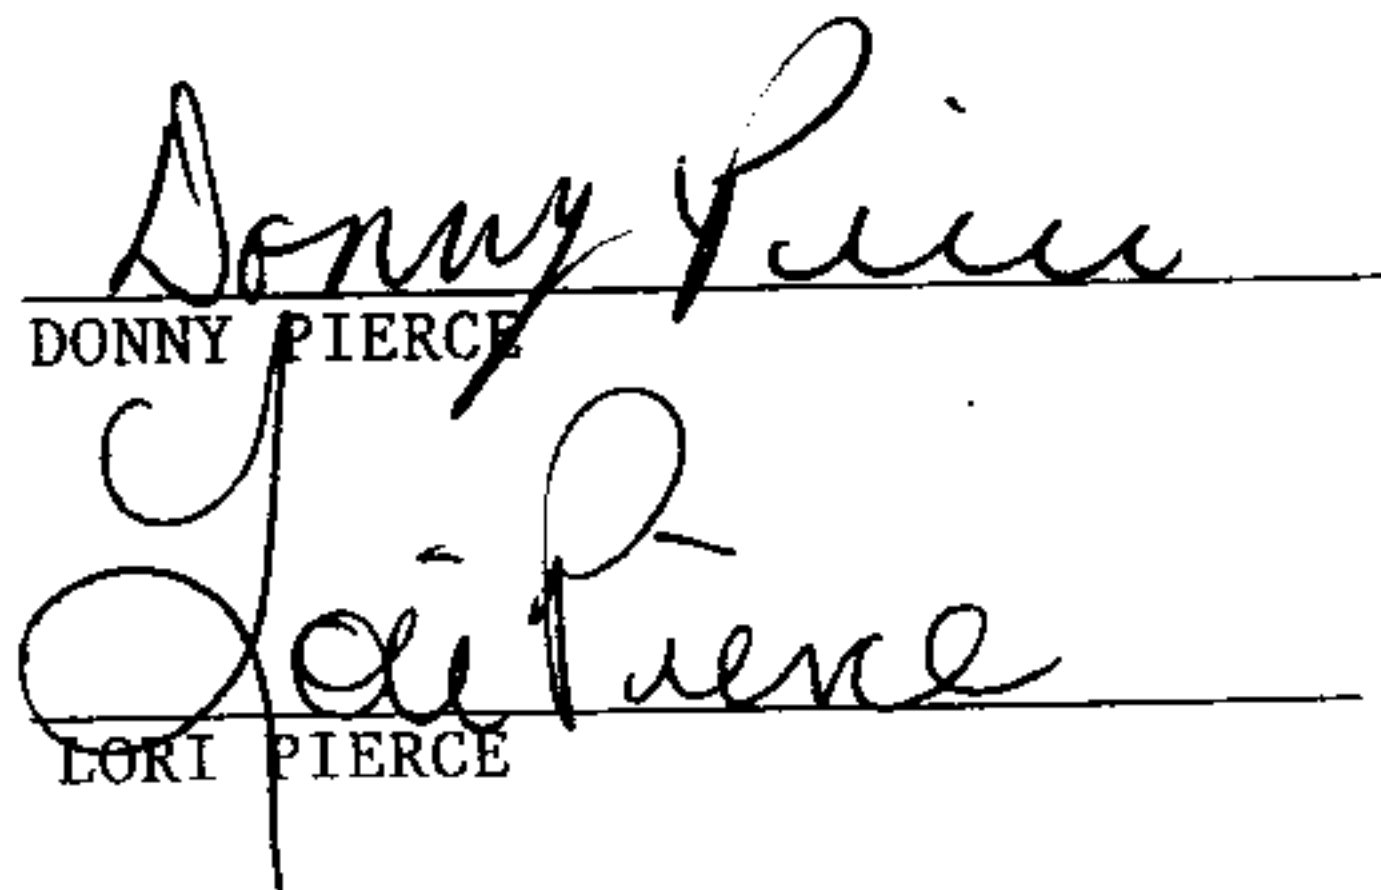 Donny Pierce
DONNY PIERCE
Lori Pierce
LORI PIERCE